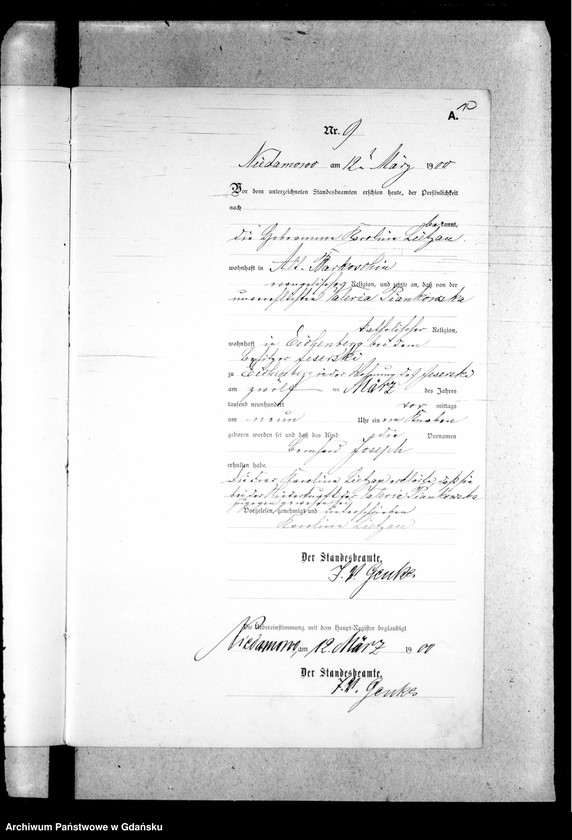 A.
Nr. 9
Niedamowo am 12. März 1900
Vor dem unterzeichneten Standesbeamten erschien heute, der Persönlichkeit
nach
bekannt,
die Hebeamme Karoline Lietzau
wohnhaft in Alt-Barkoschin
evangelischer Religion, und zeigte an, daß von der
unverehelichten Valeria Piankowska
katholischer Religion,
wohnhaft in Eichenberg bei dem
Besitzer Jeserski
zu Eichenberg in der Wohnung des Jeserski
am zwölf ten März des Jahres
tausend neunhundert vor mittags
um neun Uhr ein Knaben
geboren worden sei und daß das Kind die Vornamen
Bernhard Joseph
erhalten habe.
Karoline Lietzau erklärte, daß sie
bei der Niederkunft der Valeria Piankowska
zugegen gewesen sei
Vorgelesen, genehmigt und unterschrieben
Karoline Lietzau
Der Standesbeamte.
J. V. Genke
Die Uebereinstimmung mit dem Haupt-Register beglaubigt
Niedamowo, am 12. März 1900
Der Standesbeamte.
J. V. Genke
Archiwum Państwowe w Gdańsku